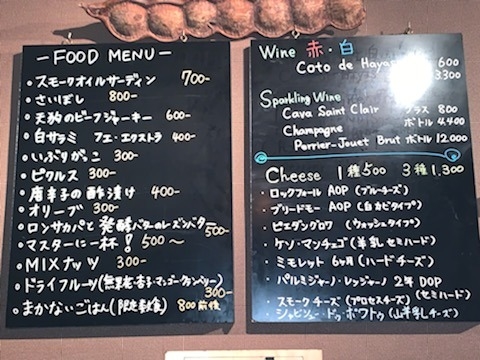 －FOOD MENU－
・スモークオイルサーディン 700-
・さいぼし 800-
・天狗のビーフジャーキー 600-
・白サラミ フェ・エクストラ 400-
・いぶりがっこ 300-
・ピクルス 300-
・唐辛子の酢漬け 400-
・オリーブ 300-
・ロンサカパと発酵バターのレーズンバター 500-
・マスターに一杯! 500~
・MIXナッツ 300-
・ドライフルーツ(無花果・杏子・マンゴー・クランベリー) 300-
・まかないごはん(限定数食) 800前後
Wine 赤・白
Coto de Hayas 600
3.300
Sparkling Wine
Cava Saint Clair グラス 800
ボトル 4.400
Champagne
Perrier-Jouet Brut ボトル 12.000
Cheese 1種500 3種1.300
・ロックフォール AOP (ブルーチーズ)
・ブリードモー AOP (白カビタイプ)
・ピエダングロワ (ウォッシュタイプ)
・ケソ・マンチェゴ (羊乳セミハード)
・ミモレット 6ヶ月 (ハードチーズ)
・パルミジャーノ・レッジャーノ 2年 DOP
(セミハード)
・スモークチーズ (プロセスチーズ)
・シャビシュー・ドゥ・ポワトゥ (山羊乳チーズ)